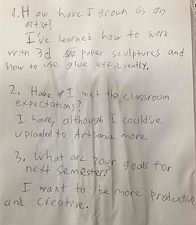 1. How have I grown as an
artist?
I've learned how to work
with 3d paper sculptures and
how to use glue efficiently.
2. Have I met the classroom
expectations?
I have, although I could've
uploaded to Artsonia more.
3. What are your goals for
next semester?
I want to be more productive
and creative.